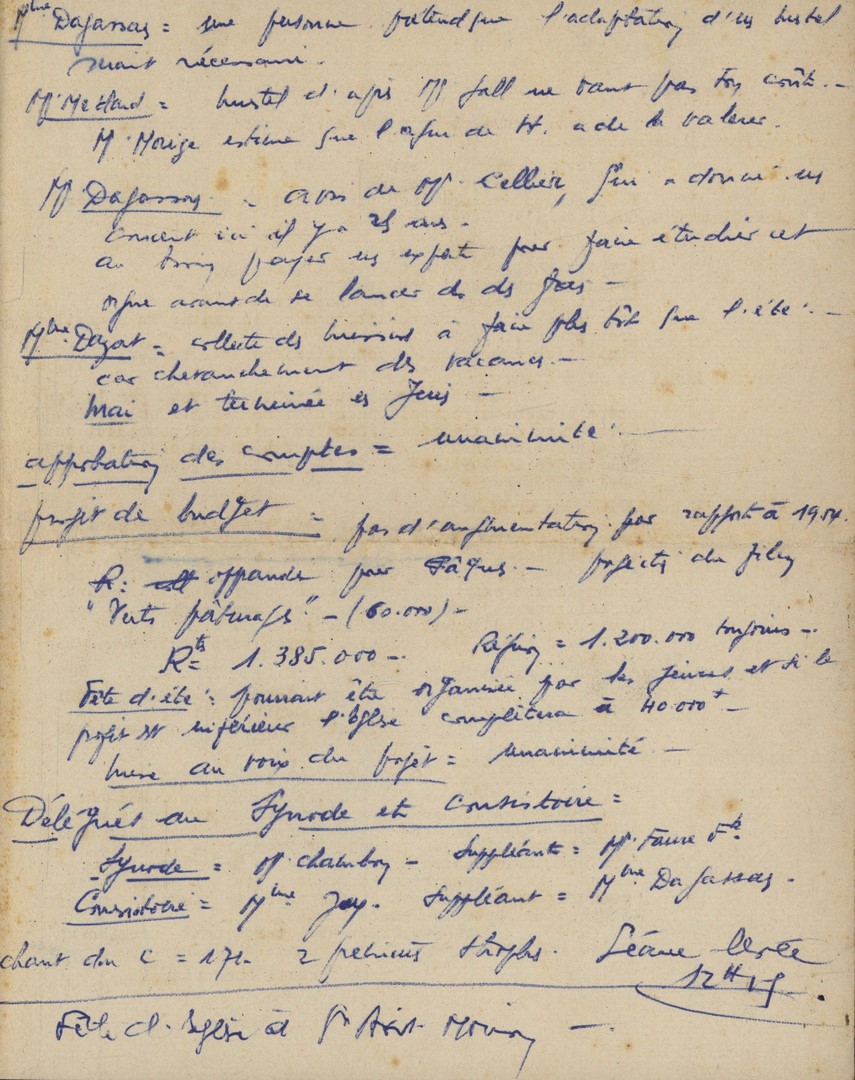 Mme Dagassas = une personne prétend que l'adaptation d'un bustel
serait nécessaire.
Mr = bustel d'après Mr Fall ne vaut pas son coût. -
M. estime que l'orgue de H. a de la valeur.
Mr Dagassas. - avis de Mr. Cellier, qui a donné un
concert ici il y a 25 ans. -
au besoin payer un expert pour faire étudier cet
orgue avant de se lancer ds ds frais -
Mme Dazat = collecte ds à faire plus tôt que l'été. -
car chevauchement des vacances. -
Mai et terminée en Juin -
approbation des comptes = unanimité. -
projet de budget = pas d'augmentation par rapport à 1954.
R: offrande pour Pâques. - projecti du film
"Verts pâturages" - (60.000) -
Rts = 1.385.000 - Région = 1.200.000 toujours -.
Fête d'été = pourrait être organisée par les jeunes et si le
profit est inférieur l'Eglise complètera à 40.000 + -
mise au voix du projet = unanimité -
Délégués au Synode et Consistoire =
Synode = Mr Chambon - Suppléant = Mr Faure
Consistoire = Mme Joy. Suppléant = Mme Dagassas.
chant du C = 171. 2 premières strophes. Séance levée
12H15.
Fête d. Eglise à